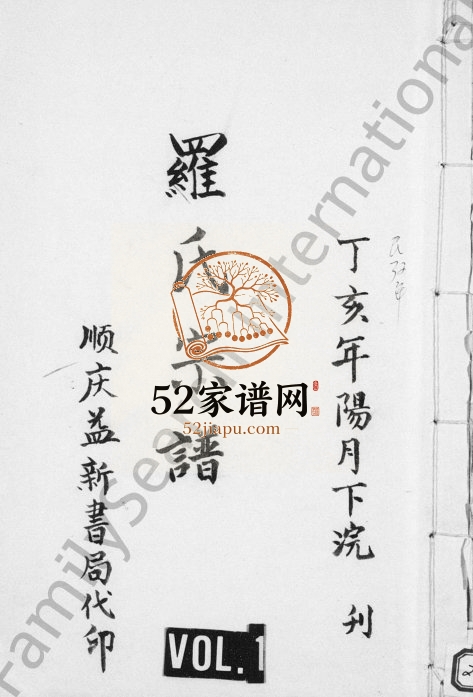 丁亥年陽月下浣 刊
羅氏宗譜
顺庆益新書局代印
52家谱网
52jiapu.com
VOL.1
FamilySearch International